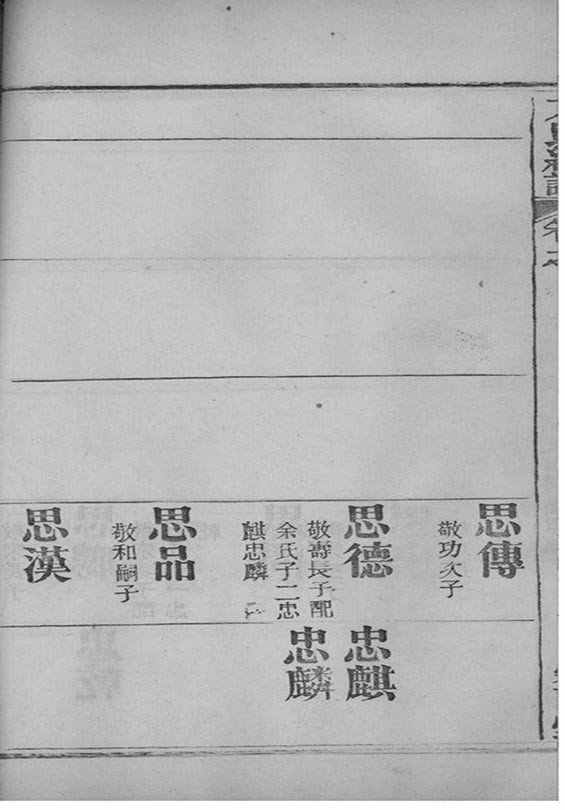 思傳
敬功次子
思德
敬壽長子配
余氏子二忠
麒忠麟
忠麒
忠麟
思品
敬和嗣子
思漢